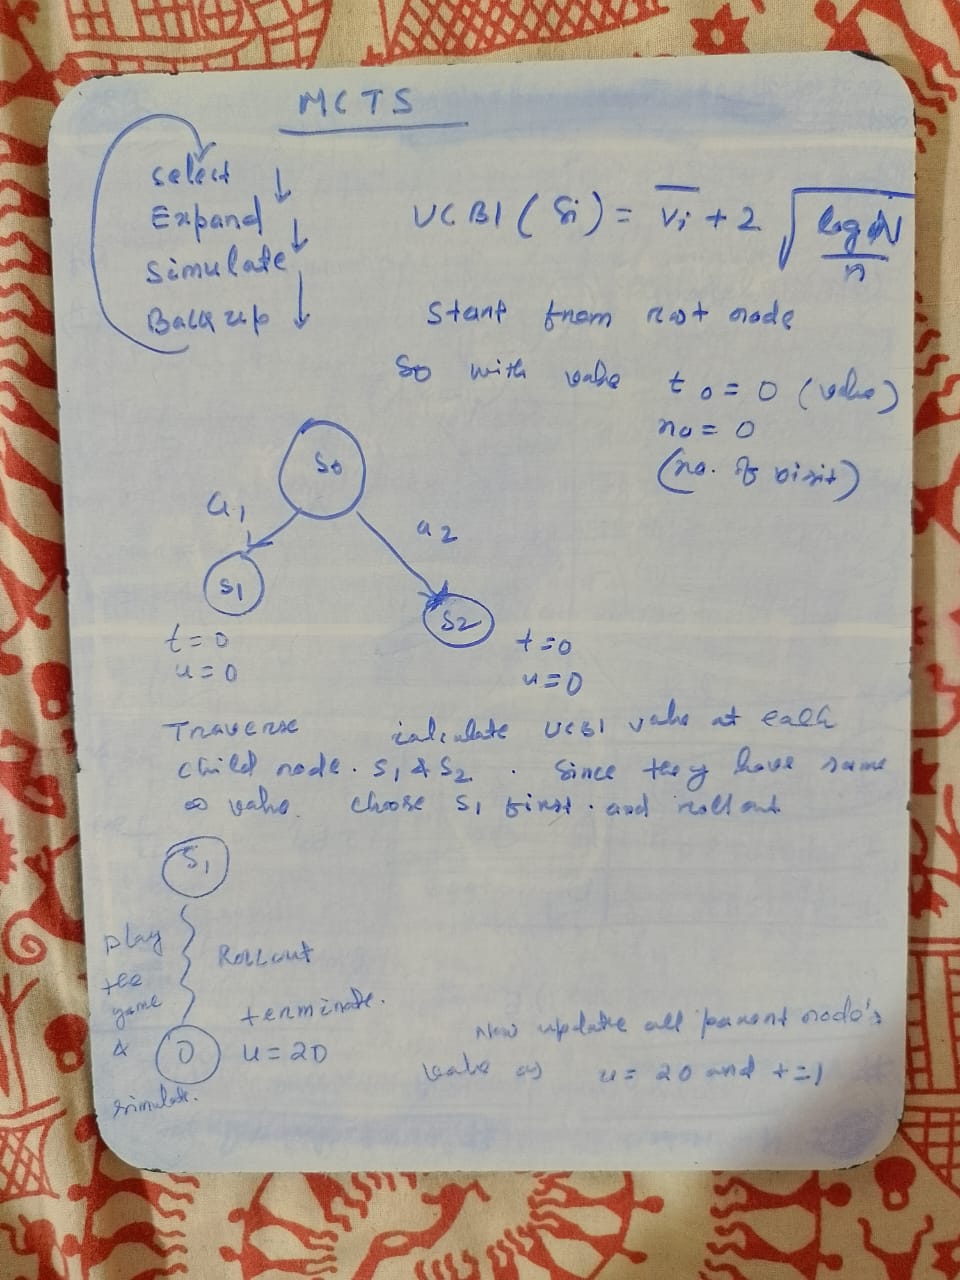 MCTS
Select
Expand
Simulate
Back up
UCB1 (Si) = Vi + 2 √(log N / n)
Start from root node
S0 with value t0 = 0 (value)
n0 = 0
(no. of visit)
S0
a1
a2
S1
S2
t=0
u=0
t=0
u=0
Traverse calculate UCB1 value at each
child node. S1 & S2. Since they have same
∞ value. choose S1 first. and rollout
S1
play
the
game
&
simulate.
Rollout
terminate.
u=20
Now update all parent node's
value as u=20 and t=1